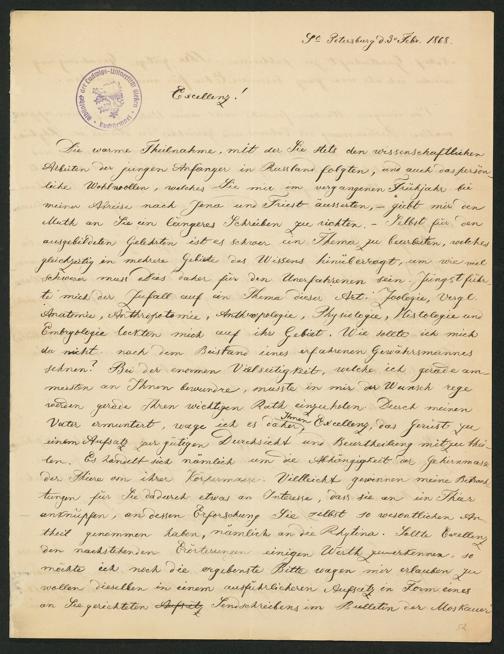 St Petersburg d. 3n Febr. 1868.
Bibliothek der Ludwigs-Universität Giessen
Excellenz!
Die warme Theilnahme, mit der Sie stets den wissenschaftlichen
Arbeiten der jungen Anfänger in Russland folgten, und auch das persön-
liche Wohlwollen, welches Sie mir im vergangenen Frühjahr bei
meiner Abreise nach Jena und Triest äusserten, – giebt mir den
Muth an Sie ein längeres Schreiben zu richten. – Selbst für den
ausgebildeten Gelehrten ist es schwer ein Thema zu bearbeiten, welches
gleichzeitig in mehrere Gebiete des Wissens hinüberragt, um wie viel
schwerer muss dies daher für den Unerfahrenen sein. Jüngst führ-
te mich der Zufall auf ein Thema dieser Art: Zoologie, vergl.
Anatomie, Anthropotomie, Anthropologie, Physiologie, Histologie und
Embryologie lockten mich auf ihr Gebiet. Wie sollte ich mich
da nicht nach dem Beistand eines erfahrenen Gewährsmannes
sehnen? Bei der enormen Vielseitigkeit, welche ich gerade am
meisten an Ihnen bewundre, musste in mir der Wunsch rege
werden gerade Ihren wichtigen Rath einzuholen. Durch meinen
Vater ermuntert, wage ich es daher, Ihnen Excellenz, das Gerüst zu
einem Aufsatz zur gütigen Durchsicht und Beurtheilung mitzuthei-
len. Es handelt sich nämlich um die Abhängigkeit der Gehirnmasse
der Thiere von ihrer Körpermasse. Vielleicht gewinnen meine Betrach-
tungen für Sie dadurch etwas an Interesse, dass sie an ein Thier
anknüpfen, an dessen Erforschung Sie selbst so wesentlichen An-
theil genommen haben, nämlich an die Rhytina. Sollte Excellenz
den nachstehenden Erörterungen einigen Werth zuerkennen, so
möchte ich noch die ergebenste Bitte wagen mir erlauben zu
wollen dieselben in einem ausführlicheren Aufsatz in Form eines
an Sie gerichteten Aufsatz Sendschreibens im Bulletin der Moskauer